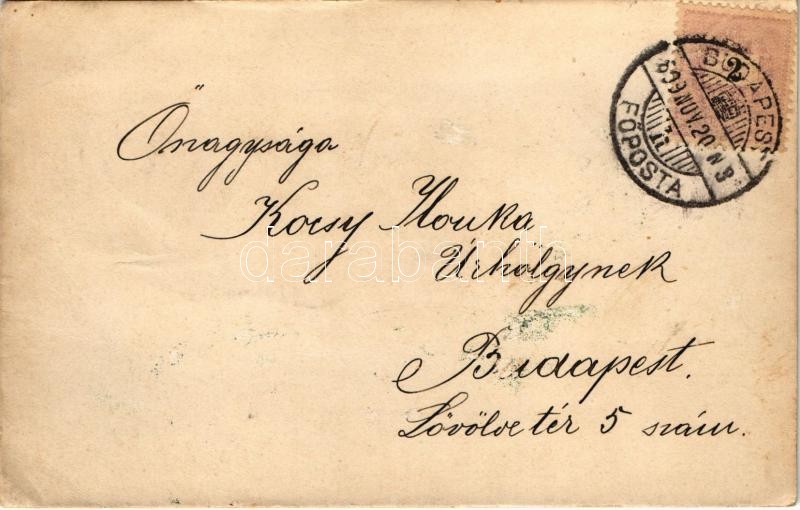 BUDAPEST
899 NOV. 20 N 3
FŐPOSTA
Őnagysága
Kocsy Ilonka
Úrhölgynek
Budapest.
Lövölde tér 5 szám.
darabanth